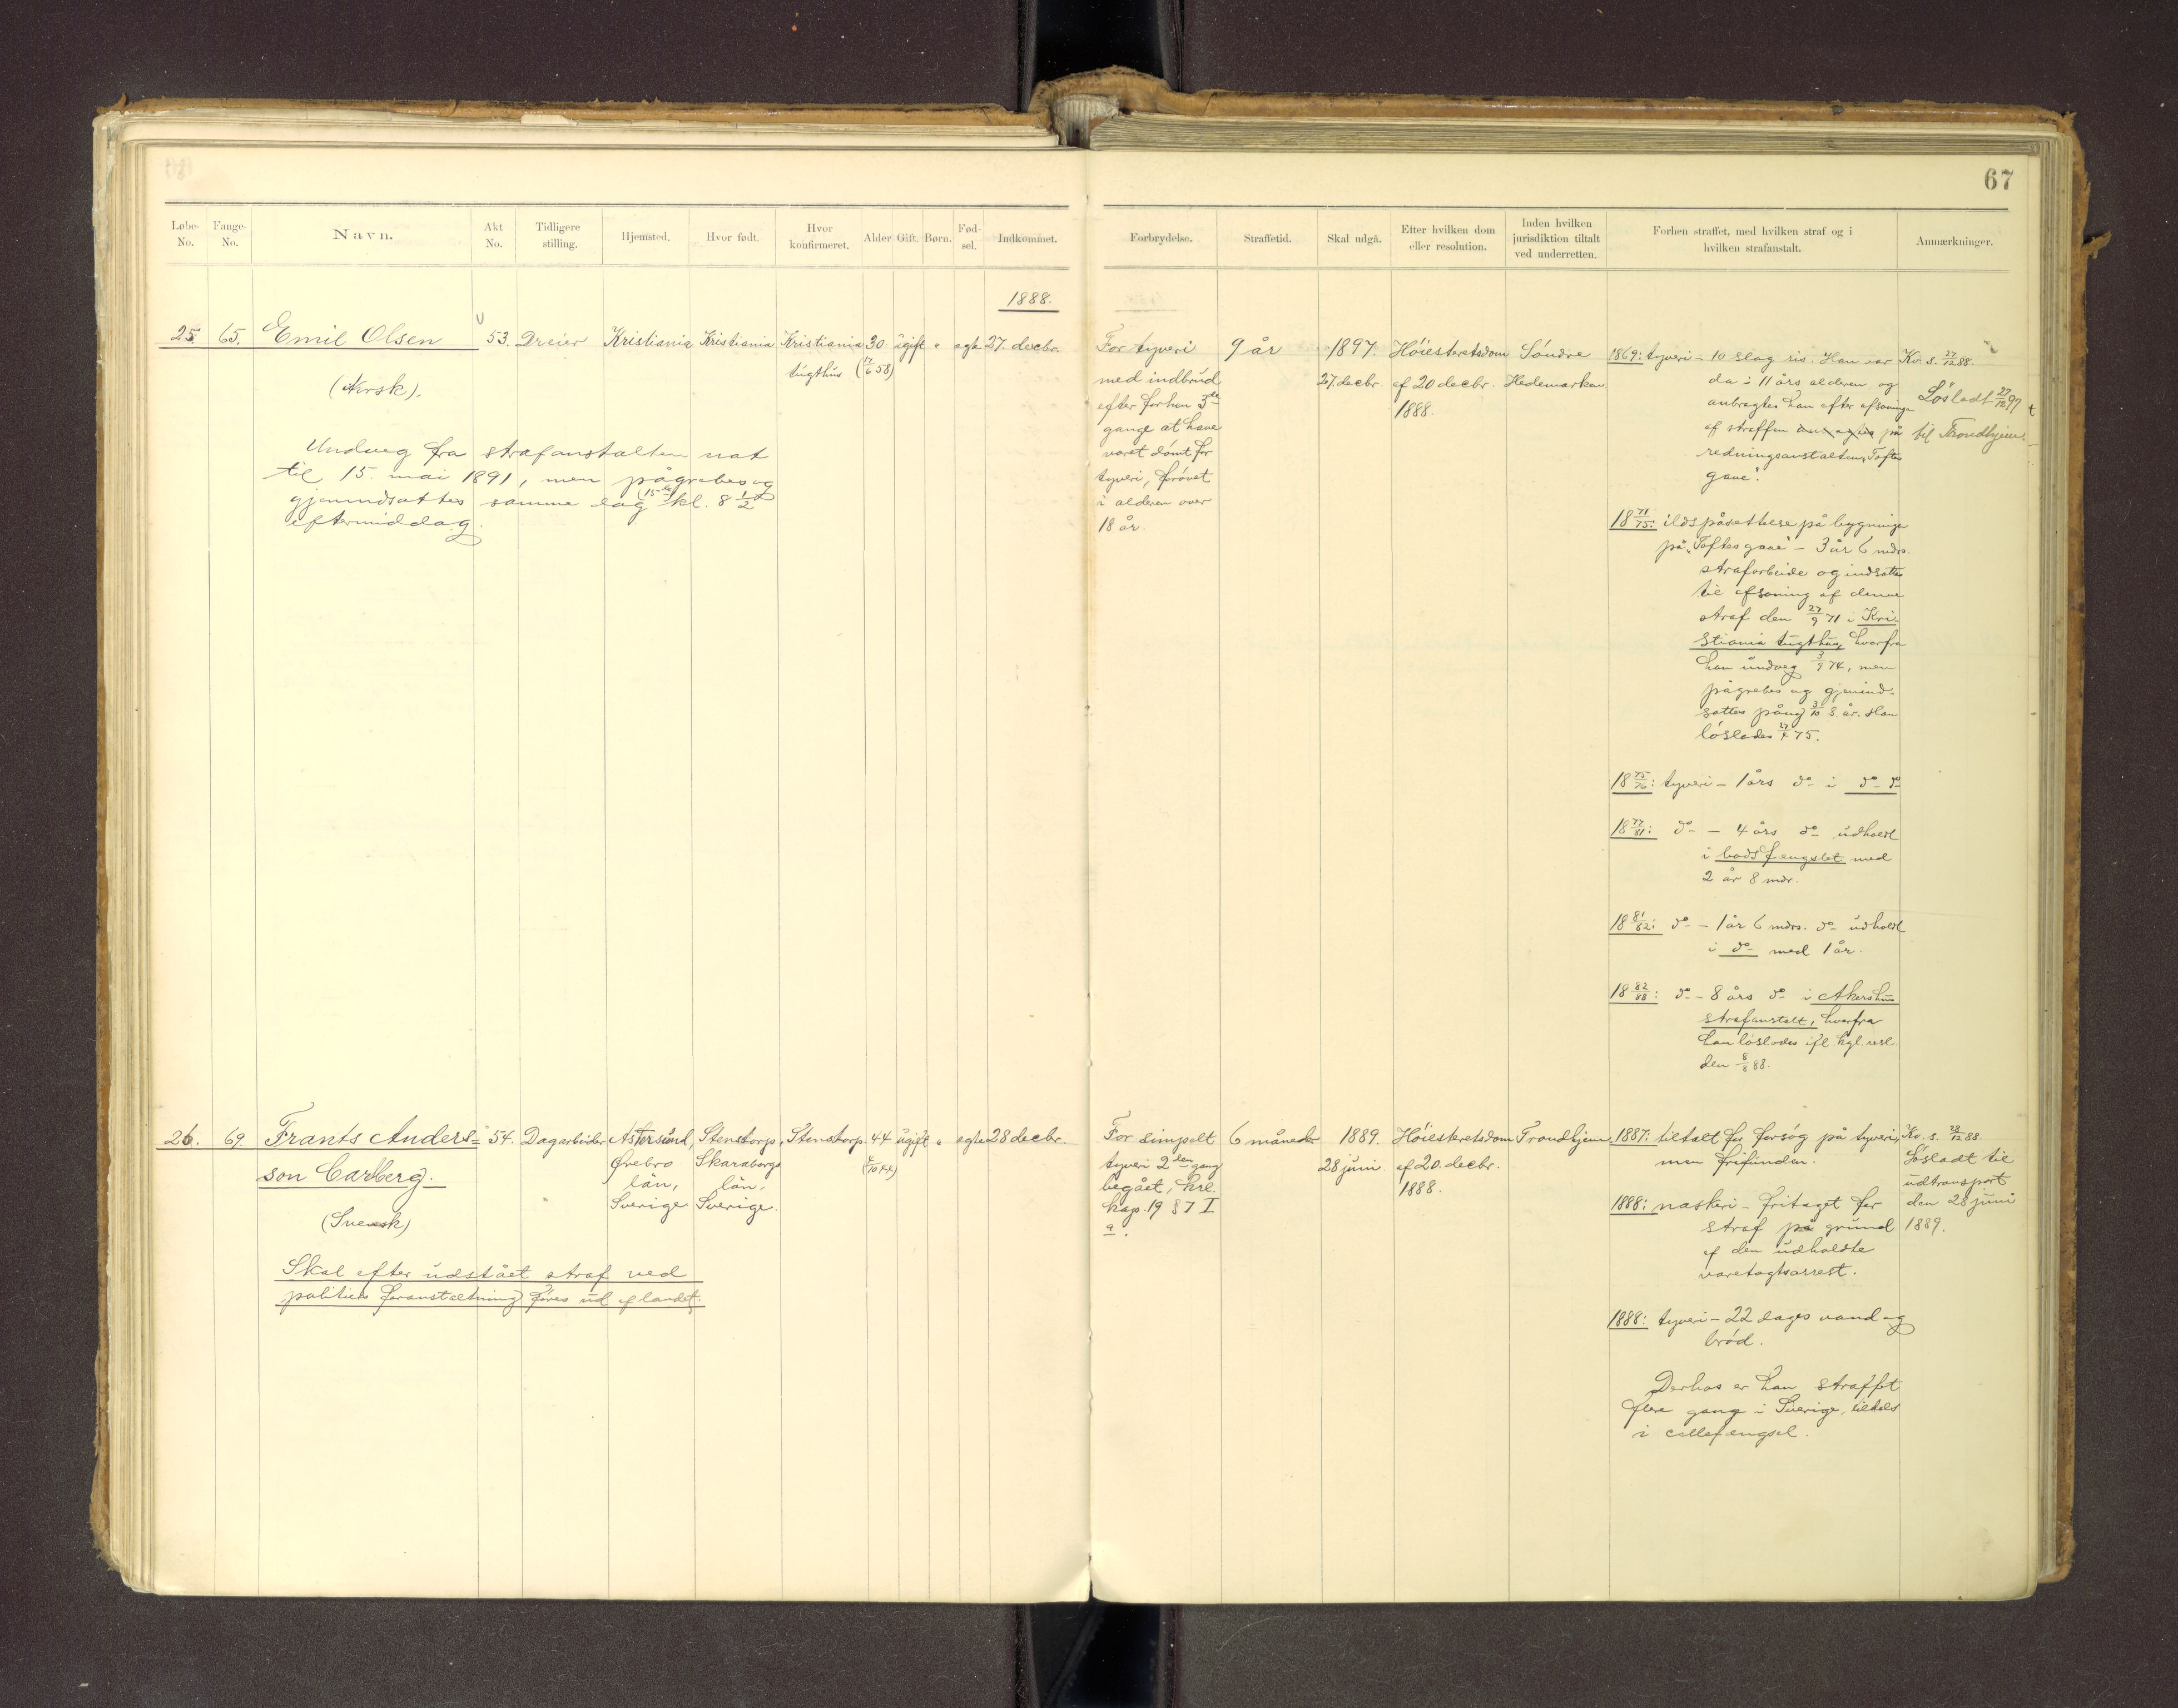 67
Løbe-No.
Fange-No.
Navn.
Akt No.
Tidligere stilling.
Hjemsted.
Hvor født.
Hvor konfirmeret.
Alder
Gift.
Børn.
Fød-sel.
Indkommet.
Forbrydelse.
Straffetid.
Skal udgå.
Efter hvilken dom eller resolution.
Inden hvilken jurisdiktion tiltalt ved underretten.
Forhen straffet, med hvilken straf og i hvilken strafanstalt.
Anmærkninger.
1888.
25. 65. Emil Olsen 53. Dreier Kristiania Kristiania Kristiania 30 ugift " egte 27. decbr.
tugthus (17/6 58)
(Norsk).
Undveg fra strafanstalten nat
til 15. mai 1891, men pågrebes og
gjenindsattes samme dag (15de) kl. 8 1/2
eftermiddag.
For tyveri
med indbrud
efter forhen 3de
gange at have
været dømt for
tyveri, forøvet
i alderen over
18 år.
9 år
1897.
27. decbr.
Høiesteretsdom
af 20 decbr.
1888.
Søndre
Hedemarken
1869: tyveri – 10 slag ris. Han var
da i 11 års alderen og
anbragtes han efter afsoningen
af straffen på
redningsanstalten „Toftes
gave".
18 71/75: ildspåsættelse på bygninger
på „Toftes gave" – 3 år 6 mdrs.
strafarbeide og indsattes
til afsoning af denne
straf den 27/9 71 i Kri-
stiania tugthus, hvorfra
han undveg 3/9 74, men
pågrebes og gjenind-
sattes påny 3/10 s. år. Han
løslades 27/4 75.
18 75/76: tyveri – 1 års do i do do
18 77/81: do – 4 års do udholdt
i bodsfengslet med
2 år 8 mdr.
18 81/82: do – 1 år 6 mdrs. do udholdt
i do med 1 år.
18 82/88: do – 8 års do i Akershus
strafanstalt, hvorfra
han løslades ifl. kgl. resl.
den 8/8 88.
Kv. s. 27/12 88.
Løsladt 27/12 97
til Trondhjem.
26. 69. Frants Anders= 54. Dagarbeider Askersund, Stenstorp, Stenstorp. 44 ugift " egte 28 decbr.
son Carlberg. Örebro Skaraborgs (4/10 44)
län, län,
Sverige Sverige.
(Svensk)
Skal efter udstået straf ved
politiets foranstaltning føres ud af landet.
For simpelt
tyveri 2den gang
begået, krl.
kap. 19 § 7 I
a.
6 måneder
1889.
28 juni.
Høiesteretsdom
af 20. decbr.
1888.
Trondhjem.
1887: tiltalt for forsøg på tyveri,
men frifunden.
1888: naskeri – fritaget for
straf på grund
af den udholdte
varetægtsarrest.
1888: tyveri – 22 dages vand og
brød.
Derhos er han straffet
flere gang i Sverige, tildels
i cellefengsel.
Kv. s. 28/12 88.
Løsladt til
udtransport
den 28 juni
1889.